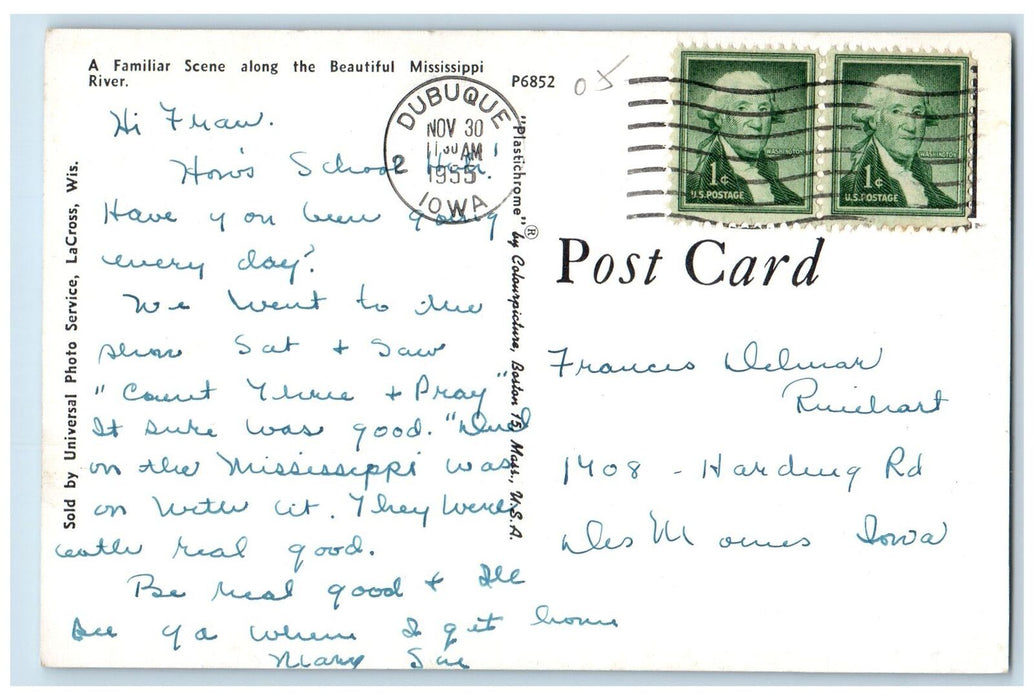 A Familiar Scene along the Beautiful Mississippi
River.
P6852
05
DUBUQUE
NOV 30
11 30 AM
1955
IOWA
2
WASHINGTON
1¢
U.S. POSTAGE
WASHINGTON
1¢
U.S. POSTAGE
Hi Fran.
How's School Huh!
Have you been going
every day?
We went to the
show Sat + Saw
"Count Three + Pray"
It sure was good. "Duel
on the Mississippi was
on with it. They were
both real good.
Be real good + I'll
see ya when I get home
Mary Sue
Sold by Universal Photo Service, LaCross, Wis.
"Plastichrome"® by Colourpicture, Boston 15, Mass., U.S.A.
Post Card
Frances Delmar
Rinehart
1408 - Harding Rd
Des Moines Iowa